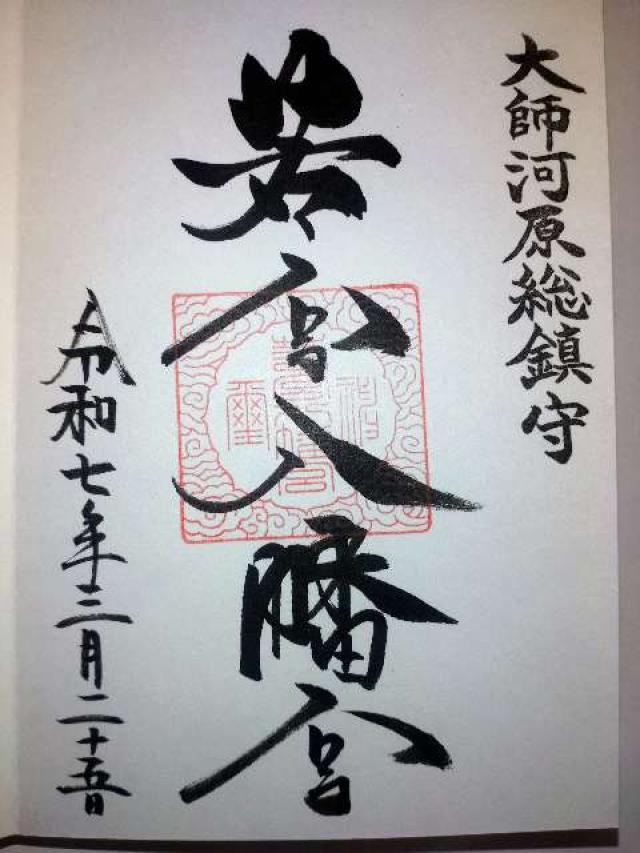 大師河原総鎮守
若宮八幡宮
令和七年三月二十五日